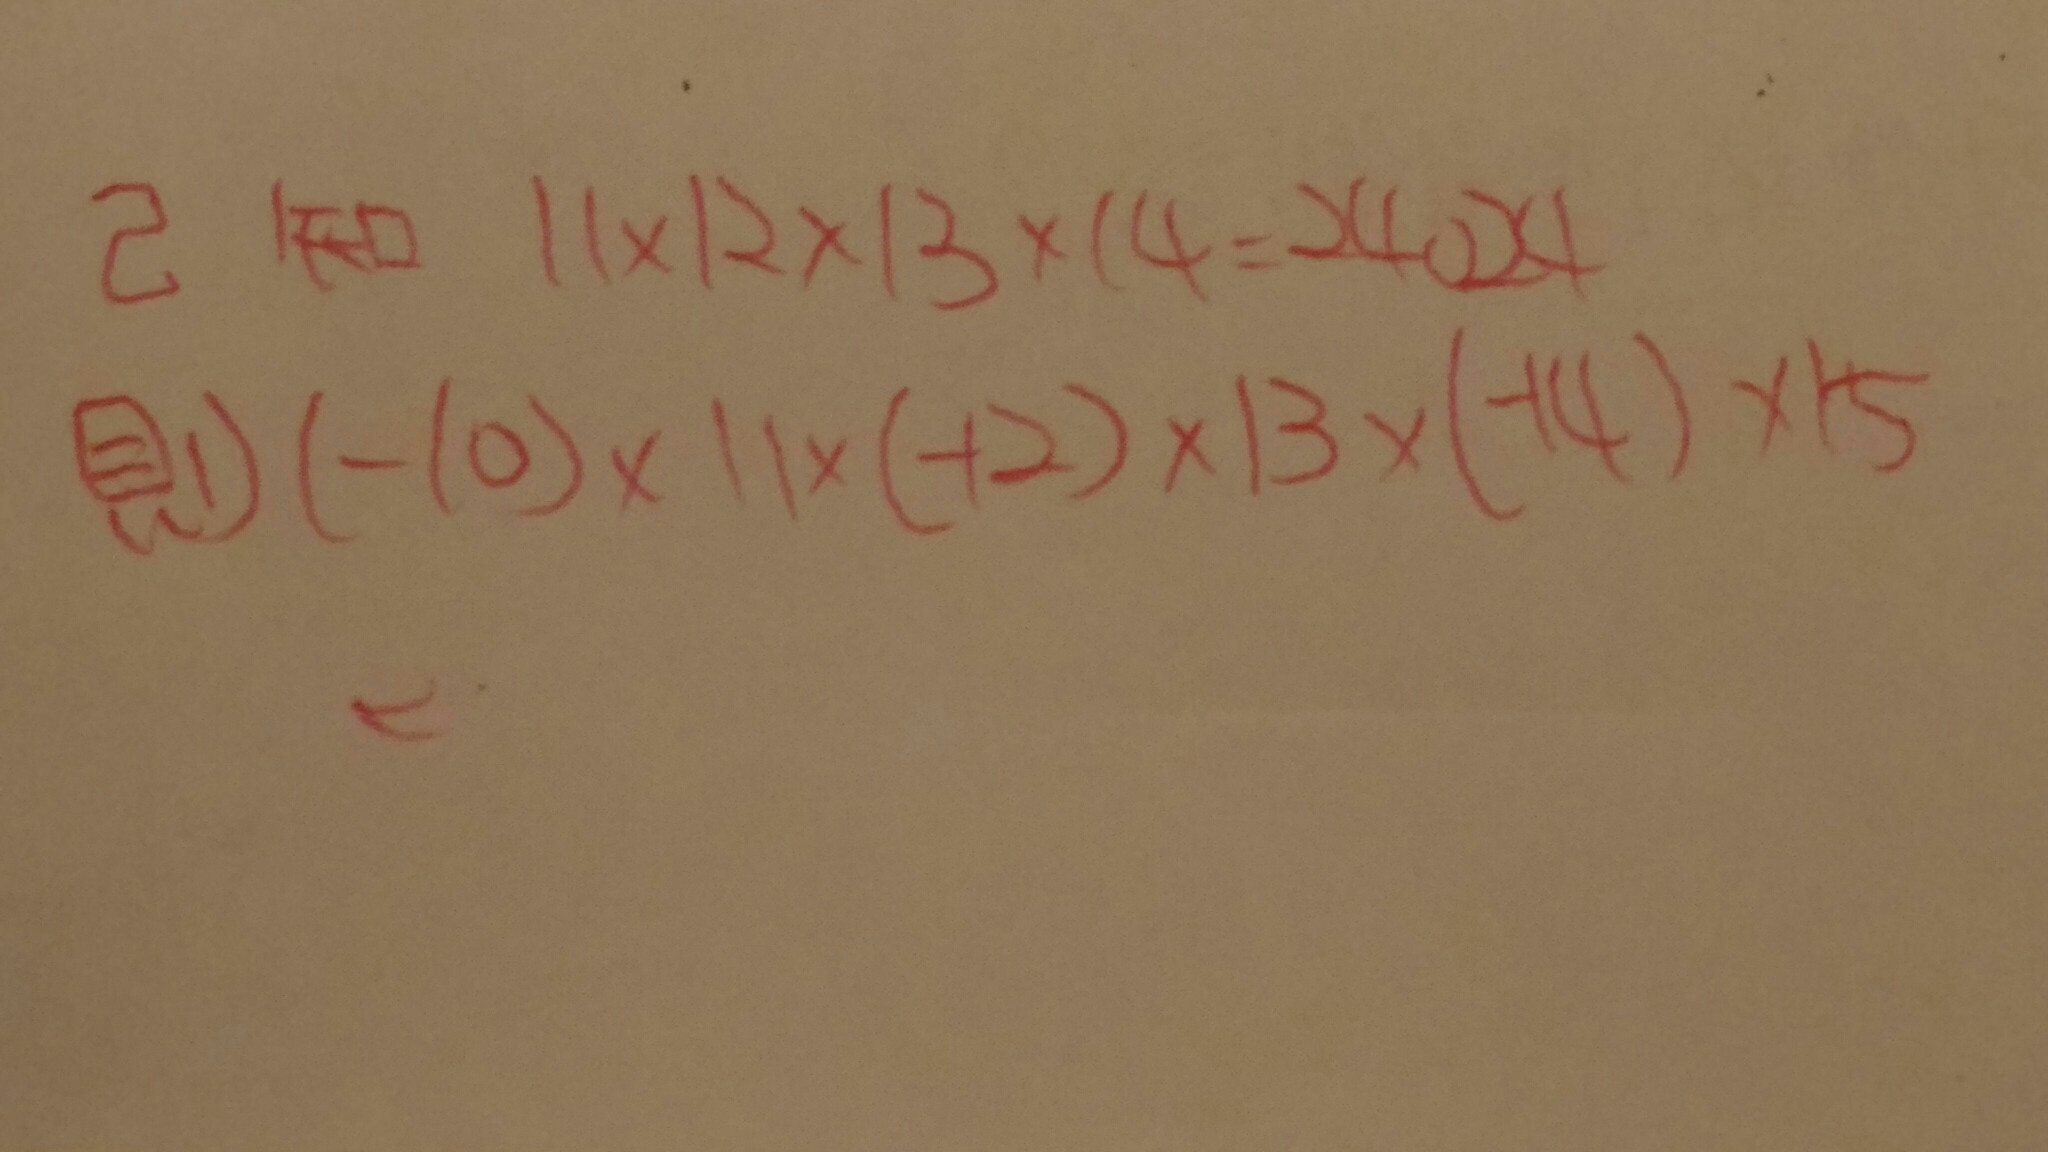 已知 11×12×13×14=24024
則 (-10)×11×(-12)×13×(-14)×15